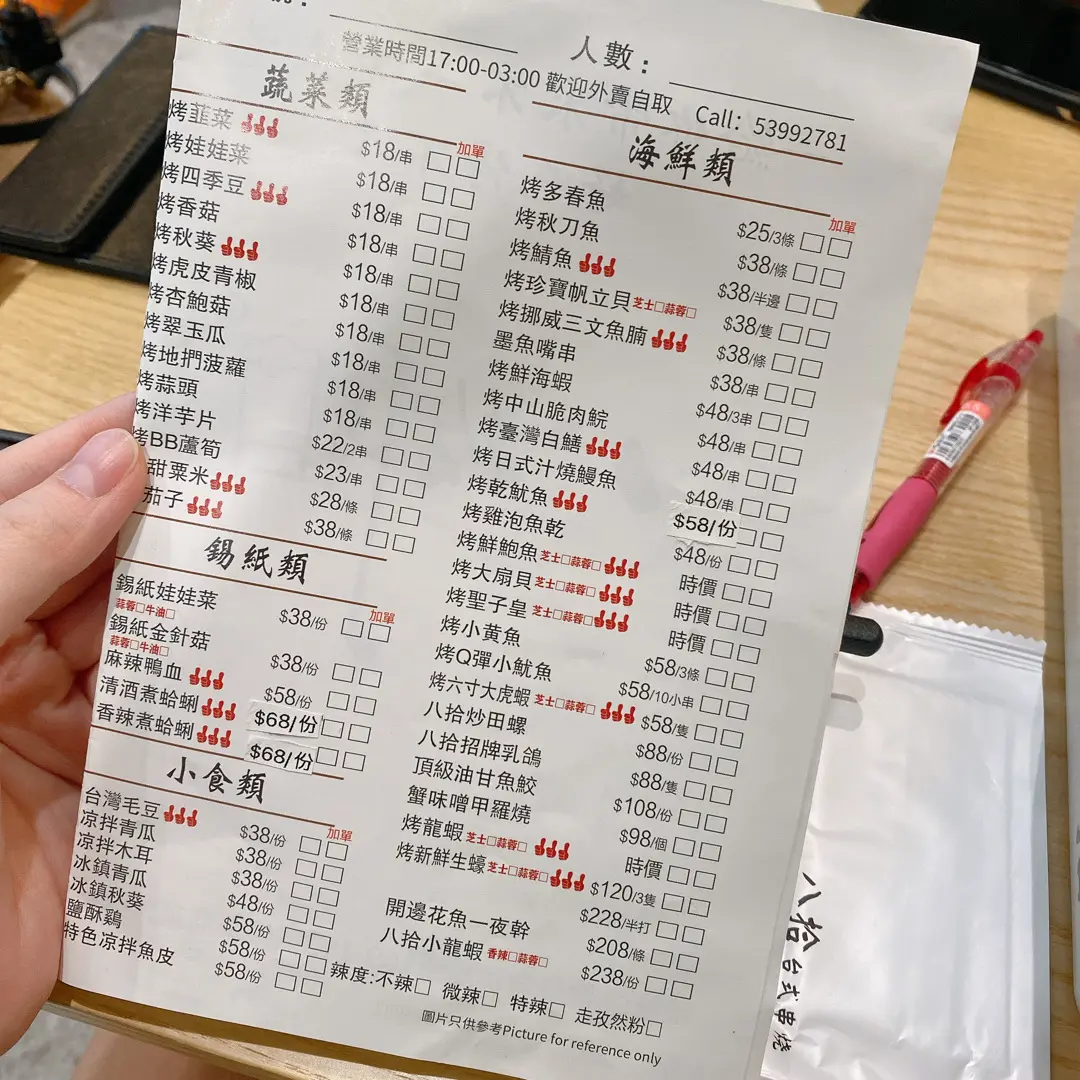 人數：
營業時間17:00-03:00 歡迎外賣自取 Call：53992781
蔬菜類
加單
烤韮菜 $18/串
烤娃娃菜 $18/串
烤四季豆 $18/串
烤香菇 $18/串
烤秋葵 $18/串
烤虎皮青椒 $18/串
烤杏鮑菇 $18/串
烤翠玉瓜 $18/串
烤地捫菠蘿 $18/串
烤蒜頭 $18/串
烤洋芋片 $22/2串
烤BB蘆筍 $23/串
甜粟米 $28/條
茄子 $38/條
錫紙類
加單
錫紙娃娃菜 $38/份
蒜蓉□牛油□
錫紙金針菇 $38/份
蒜蓉□牛油□
麻辣鴨血 $58/份
清酒煮蛤蜊 $68/份
香辣煮蛤蜊 $68/份
小食類
加單
台灣毛豆 $38/份
凉拌青瓜 $38/份
凉拌木耳 $38/份
冰鎮青瓜 $48/份
冰鎮秋葵 $58/份
鹽酥鷄 $58/份
特色凉拌魚皮 $58/份
海鮮類
加單
烤多春魚 $25/3條
烤秋刀魚 $38/條
烤鯖魚 $38/半邊
烤珍寶帆立貝 芝士□蒜蓉□ $38/隻
烤挪威三文魚腩 $38/條
墨魚嘴串 $38/串
烤鮮海蝦 $48/3串
烤中山脆肉鯇 $48/串
烤臺灣白鱔 $48/串
烤日式汁燒鰻魚 $48/串
烤乾魷魚 $58/份
烤雞泡魚乾 $48/份
烤鮮鮑魚 芝士□蒜蓉□ 時價
烤大扇貝 芝士□蒜蓉□ 時價
烤聖子皇 芝士□蒜蓉□ 時價
烤小黃魚 $58/3條
烤Q彈小魷魚 $58/10小串
烤六寸大虎蝦 芝士□蒜蓉□ $58/隻
八拾炒田螺 $88/份
八拾招牌乳鴿 $88/隻
頂級油甘魚鮫 $108/份
蟹味噌甲羅燒 $98/個
烤龍蝦 芝士□蒜蓉□ 時價
烤新鮮生蠔 芝士□蒜蓉□ $120/3隻
$228/半打
開邊花魚一夜幹 $208/條
八拾小龍蝦 香辣□蒜蓉□ $238/份
辣度:不辣□ 微辣□ 特辣□ 走孜然粉□
圖片只供參考Picture for reference only
八拾 台式串燒